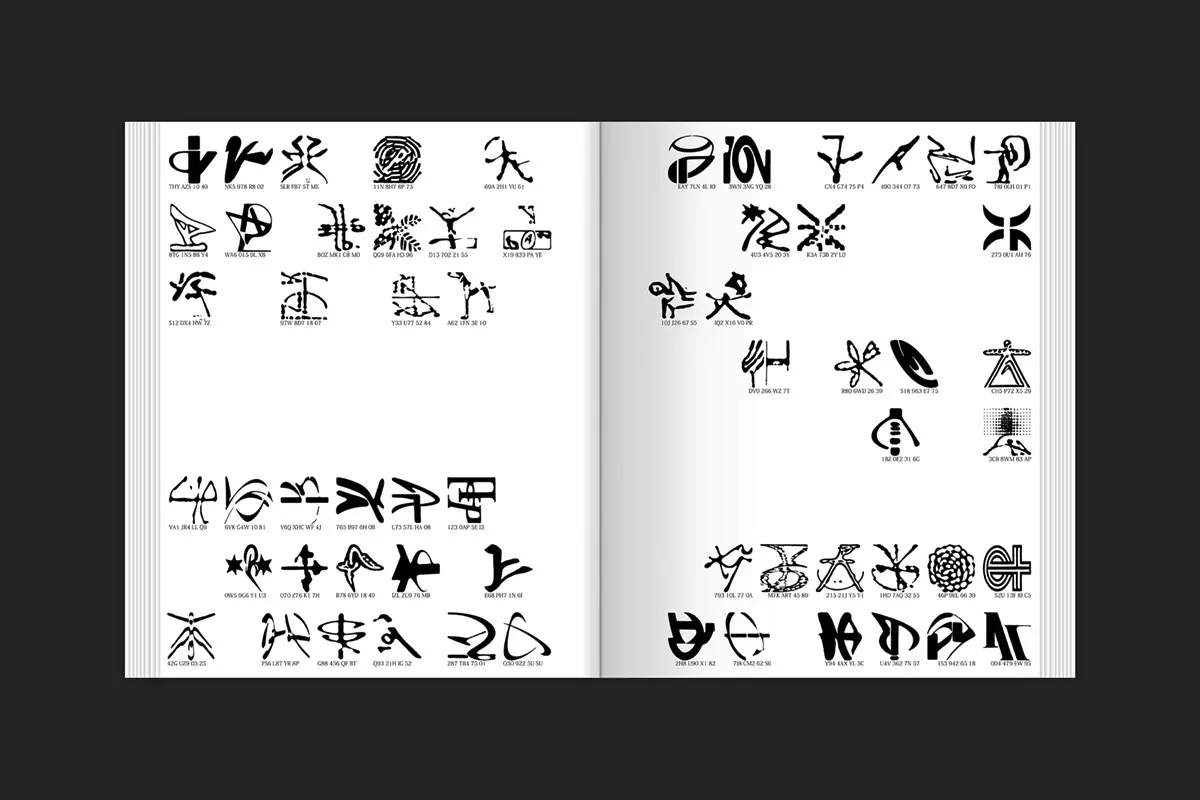 THY AZS 10 40
NK5 978 R8 02
SLR FB7 5T ME
11N 8H7 8P 73
69A 2H1 YU 61
8TG 1N5 B8 Y4
WA6 015 9L X8
BOZ MK1 C8 M0
QG9 6FA H3 96
D13 702 21 55
X19 833 PA YE
512 DX4 HW 7Z
97W 8D7 18 67
Y33 U77 52 84
A62 1FN 3E 10
YA1 JR4 LL Q9
6VK G4W 10 81
Y6Q XHC WF 4J
765 B97 6H 0B
L73 57L HA 08
123 0AP 5E I3
OW5 9G6 Y1 U3
070 Z76 K1 7H
B78 6YD 18 49
IZL 2U9 76 MB
E68 PH7 1N 6I
42G UZ9 03 25
FS6 L8T YR 8P
G88 456 QF BT
Q93 21H IG 52
287 TB4 75 01
O30 922 5U SU
EAY 7LN 4L IO
3WN 3NG YQ 28
CN4 G74 75 P4
490 344 O7 73
647 8D7 X0 FO
78I 0LH 01 P1
4U3 4V5 20 3Y
K3A 73B 2Y L0
273 0U1 AH 76
10J J26 67 S5
IQ2 X16 V0 PR
DV0 266 WZ 7T
R80 6WD 26 39
518 963 E7 75
CH5 P72 X5 29
18Z 0E2 31 6G
3C8 8WM 83 AP
793 10L 77 0A
M7K ART 45 89
215 21J Y5 Y1
1HD 7AQ 32 55
46P 98L 66 39
52U 13F 8I C5
2H8 U90 X1 82
7I8 CM2 62 S6
Y94 4AX YL 3C
U4V 362 7N 57
1S3 942 65 1B
004 479 EW 95